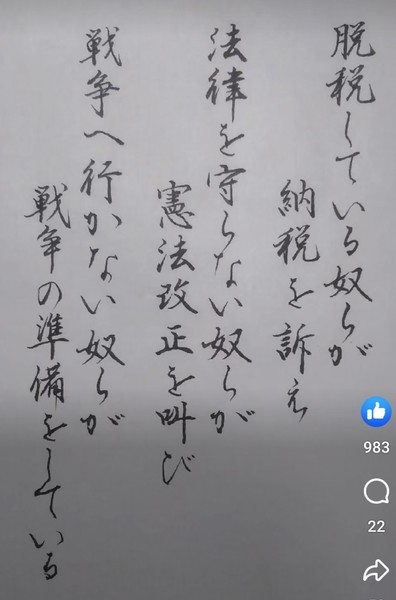 脱税している奴らが
納税を訴え
法律を守らない奴らが
憲法改正を叫び
戦争へ行かない奴らが
戦争の準備をしている
983
22